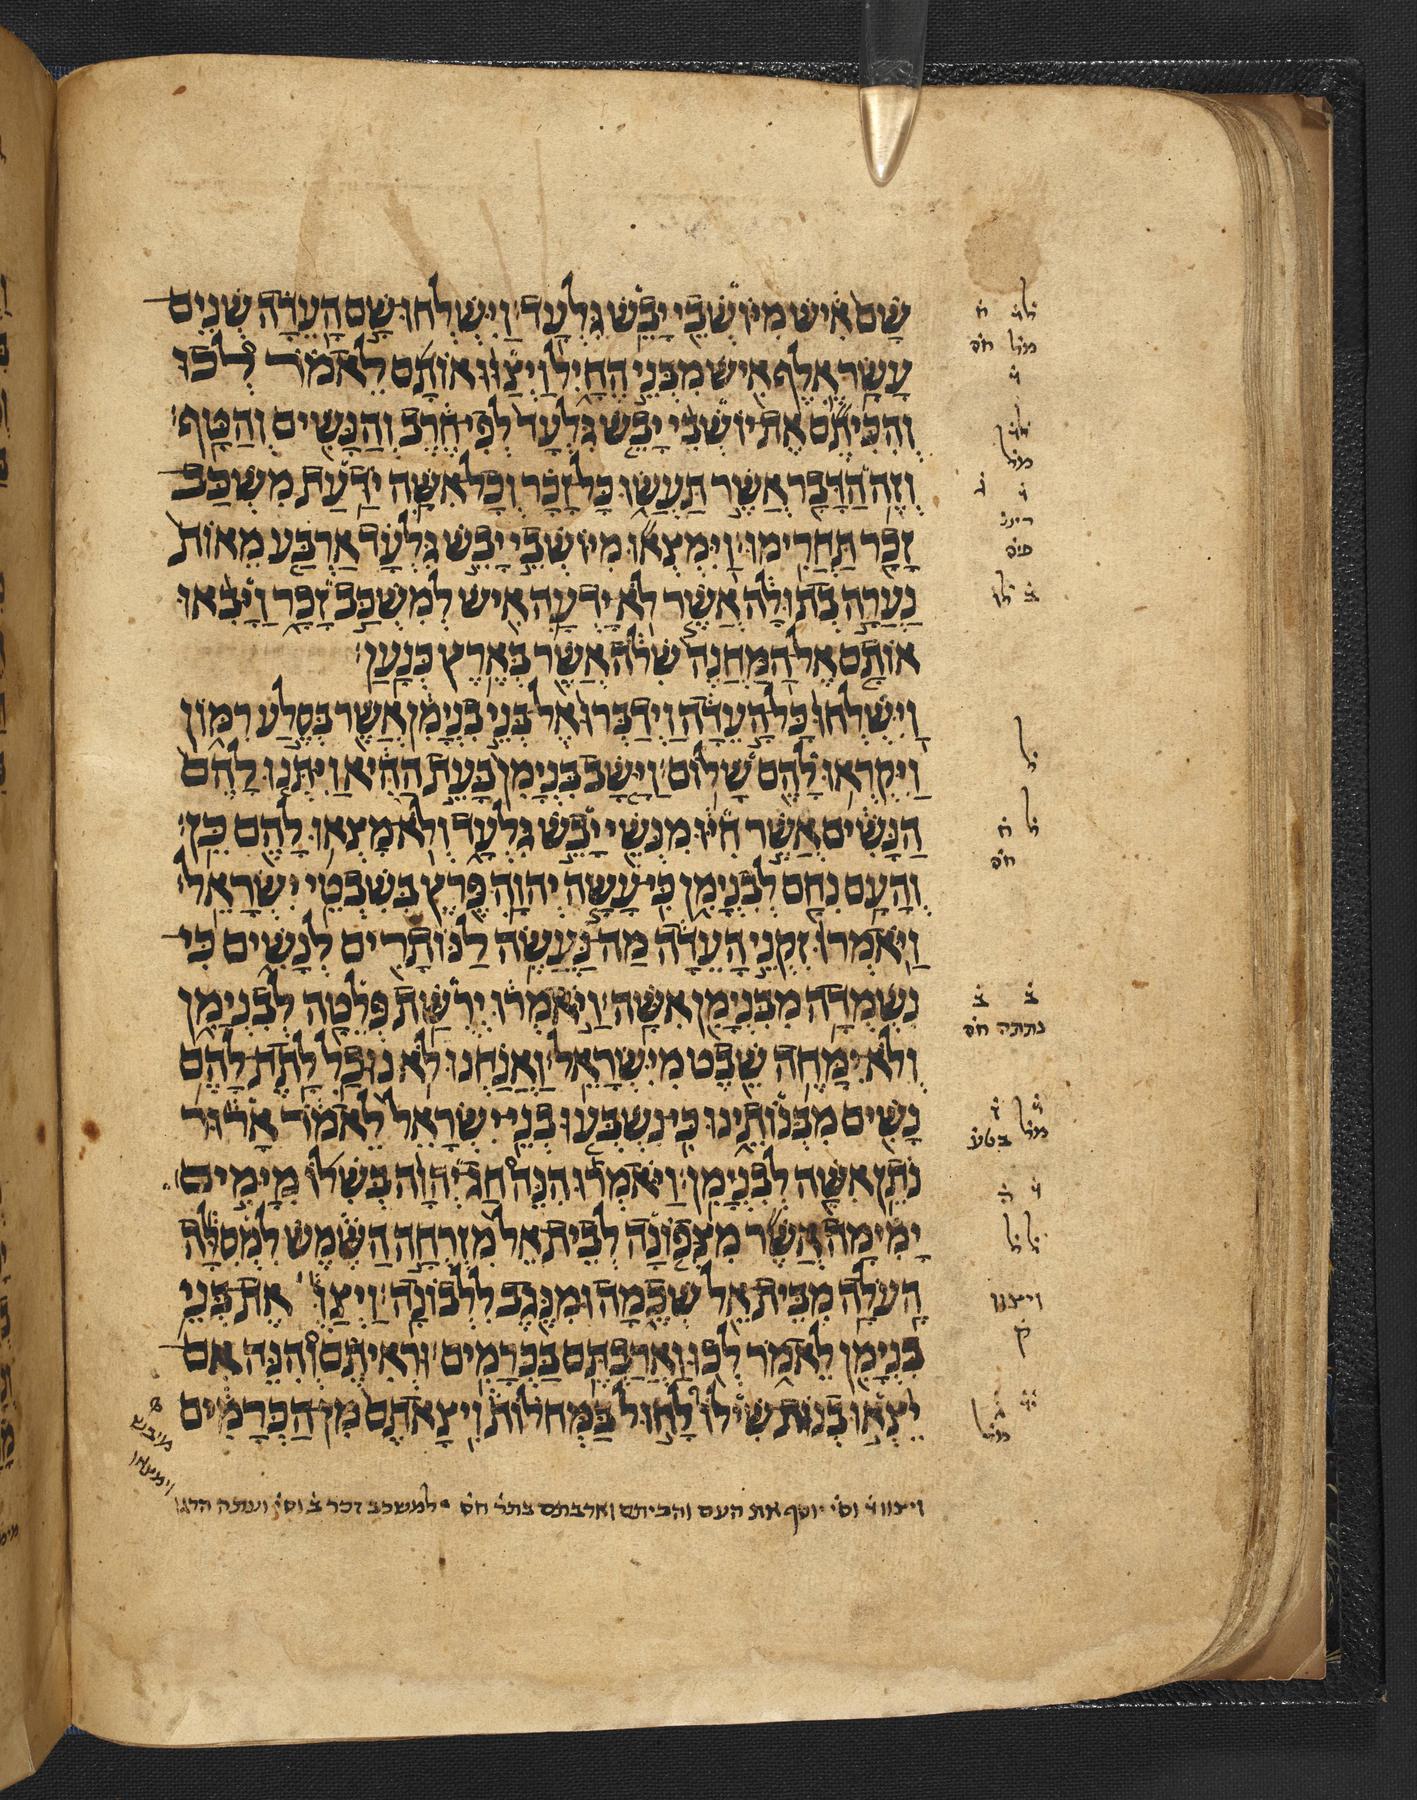 שָׁם אִישׁ מִיּוֹשְׁבֵי יָבֵשׁ גִּלְעָד׃ וַיִּשְׁלְחוּ שָׁם הָעֵדָה שְׁנֵים
עָשָׂר אֶלֶף אִישׁ מִבְּנֵי הֶחָיִל וַיְצַוּוּ אוֹתָם לֵאמֹר לְכוּ
וְהִכִּיתֶם אֶת יוֹשְׁבֵי יָבֵשׁ גִּלְעָד לְפִי חֶרֶב וְהַנָּשִׁים וְהַטָּף׃
וְזֶה הַדָּבָר אֲשֶׁר תַּעֲשׂוּ כָּל זָכָר וְכָל אִשָּׁה יֹדַעַת מִשְׁכַּב
זָכָר תַּחֲרִימוּ׃ וַיִּמְצְאוּ מִיּוֹשְׁבֵי יָבֵשׁ גִּלְעָד אַרְבַּע מֵאוֹת
נַעֲרָה בְתוּלָה אֲשֶׁר לֹא יָדְעָה אִישׁ לְמִשְׁכַּב זָכָר וַיָּבִאוּ
אוֹתָם אֶל הַמַּחֲנֶה שִׁלֹה אֲשֶׁר בְּאֶרֶץ כְּנָעַן׃
וַיִּשְׁלְחוּ כָּל הָעֵדָה וַיְדַבְּרוּ אֶל בְּנֵי בִנְיָמִן אֲשֶׁר בְּסֶלַע רִמּוֹן
וַיִּקְרְאוּ לָהֶם שָׁלוֹם׃ וַיָּשָׁב בִּנְיָמִן בָּעֵת הַהִיא וַיִּתְּנוּ לָהֶם
הַנָּשִׁים אֲשֶׁר חִיּוּ מִנְּשֵׁי יָבֵשׁ גִּלְעָד וְלֹא מָצְאוּ לָהֶם כֵּן׃
וְהָעָם נִחָם לְבִנְיָמִן כִּי עָשָׂה יְהוָה פֶּרֶץ בְּשִׁבְטֵי יִשְׂרָאֵל׃
וַיֹּאמְרוּ זִקְנֵי הָעֵדָה מַה נַּעֲשֶׂה לַנּוֹתָרִים לְנָשִׁים כִּי
נִשְׁמְדָה מִבִּנְיָמִן אִשָּׁה׃ וַיֹּאמְרוּ יְרֻשַּׁת פְּלֵטָה לְבִנְיָמִן
וְלֹא יִמָּחֶה שֵׁבֶט מִיִּשְׂרָאֵל׃ וַאֲנַחְנוּ לֹא נוּכַל לָתֵת לָהֶם
נָשִׁים מִבְּנוֹתֵינוּ כִּי נִשְׁבְּעוּ בְנֵי יִשְׂרָאֵל לֵאמֹר אָרוּר
נֹתֵן אִשָּׁה לְבִנְיָמִן׃ וַיֹּאמְרוּ הִנֵּה חַג יְהוָה בְּשִׁלוֹ מִיָּמִים
יָמִימָה אֲשֶׁר מִצְּפוֹנָה לְבֵית אֵל מִזְרְחָה הַשֶּׁמֶשׁ לִמְסִלָּה
הָעֹלָה מִבֵּית אֵל שְׁכֶמָה וּמִנֶּגֶב לִלְבוֹנָה׃ וַיְצַו אֶת בְּנֵי
בִנְיָמִן לֵאמֹר לְכוּ וַאֲרַבְתֶּם בַּכְּרָמִים׃ וּרְאִיתֶם וְהִנֵּה אִם
יֵצְאוּ בְּנוֹת שִׁילוֹ לָחוּל בַּמְּחֹלוֹת וִיצָאתֶם מִן הַכְּרָמִים
מל חס
מל
חס
נתתה חס
מל בטע
ויצוו
ק
מל
ויצוו וס׳ יוסף את העם והכיתם וארבתם בתר חס למשכב זכר ב וס׳ ועתה הרגו